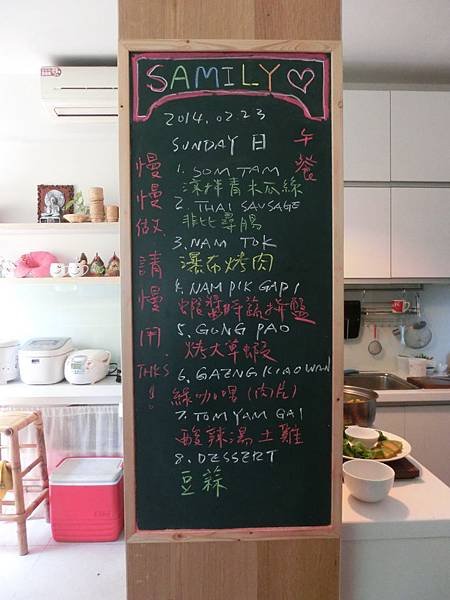 SAMILY ♡
2014.02.23
SUNDAY 日
午餐
慢慢做請慢用
THKS!
1. SOM TAM
涼拌青木瓜絲
2. THAI SAUSAGE
非比尋腸
3. NAM TOK
瀑布烤肉
4. NAM PIK GAPI
蝦醬時蔬拼盤
5. GUNG PAO
烤大草蝦
6. GAENG KIAO WAN
綠咖哩(肉片)
7. TOM YAM GAI
酸辣湯土雞
8. DESSERT
豆蒜